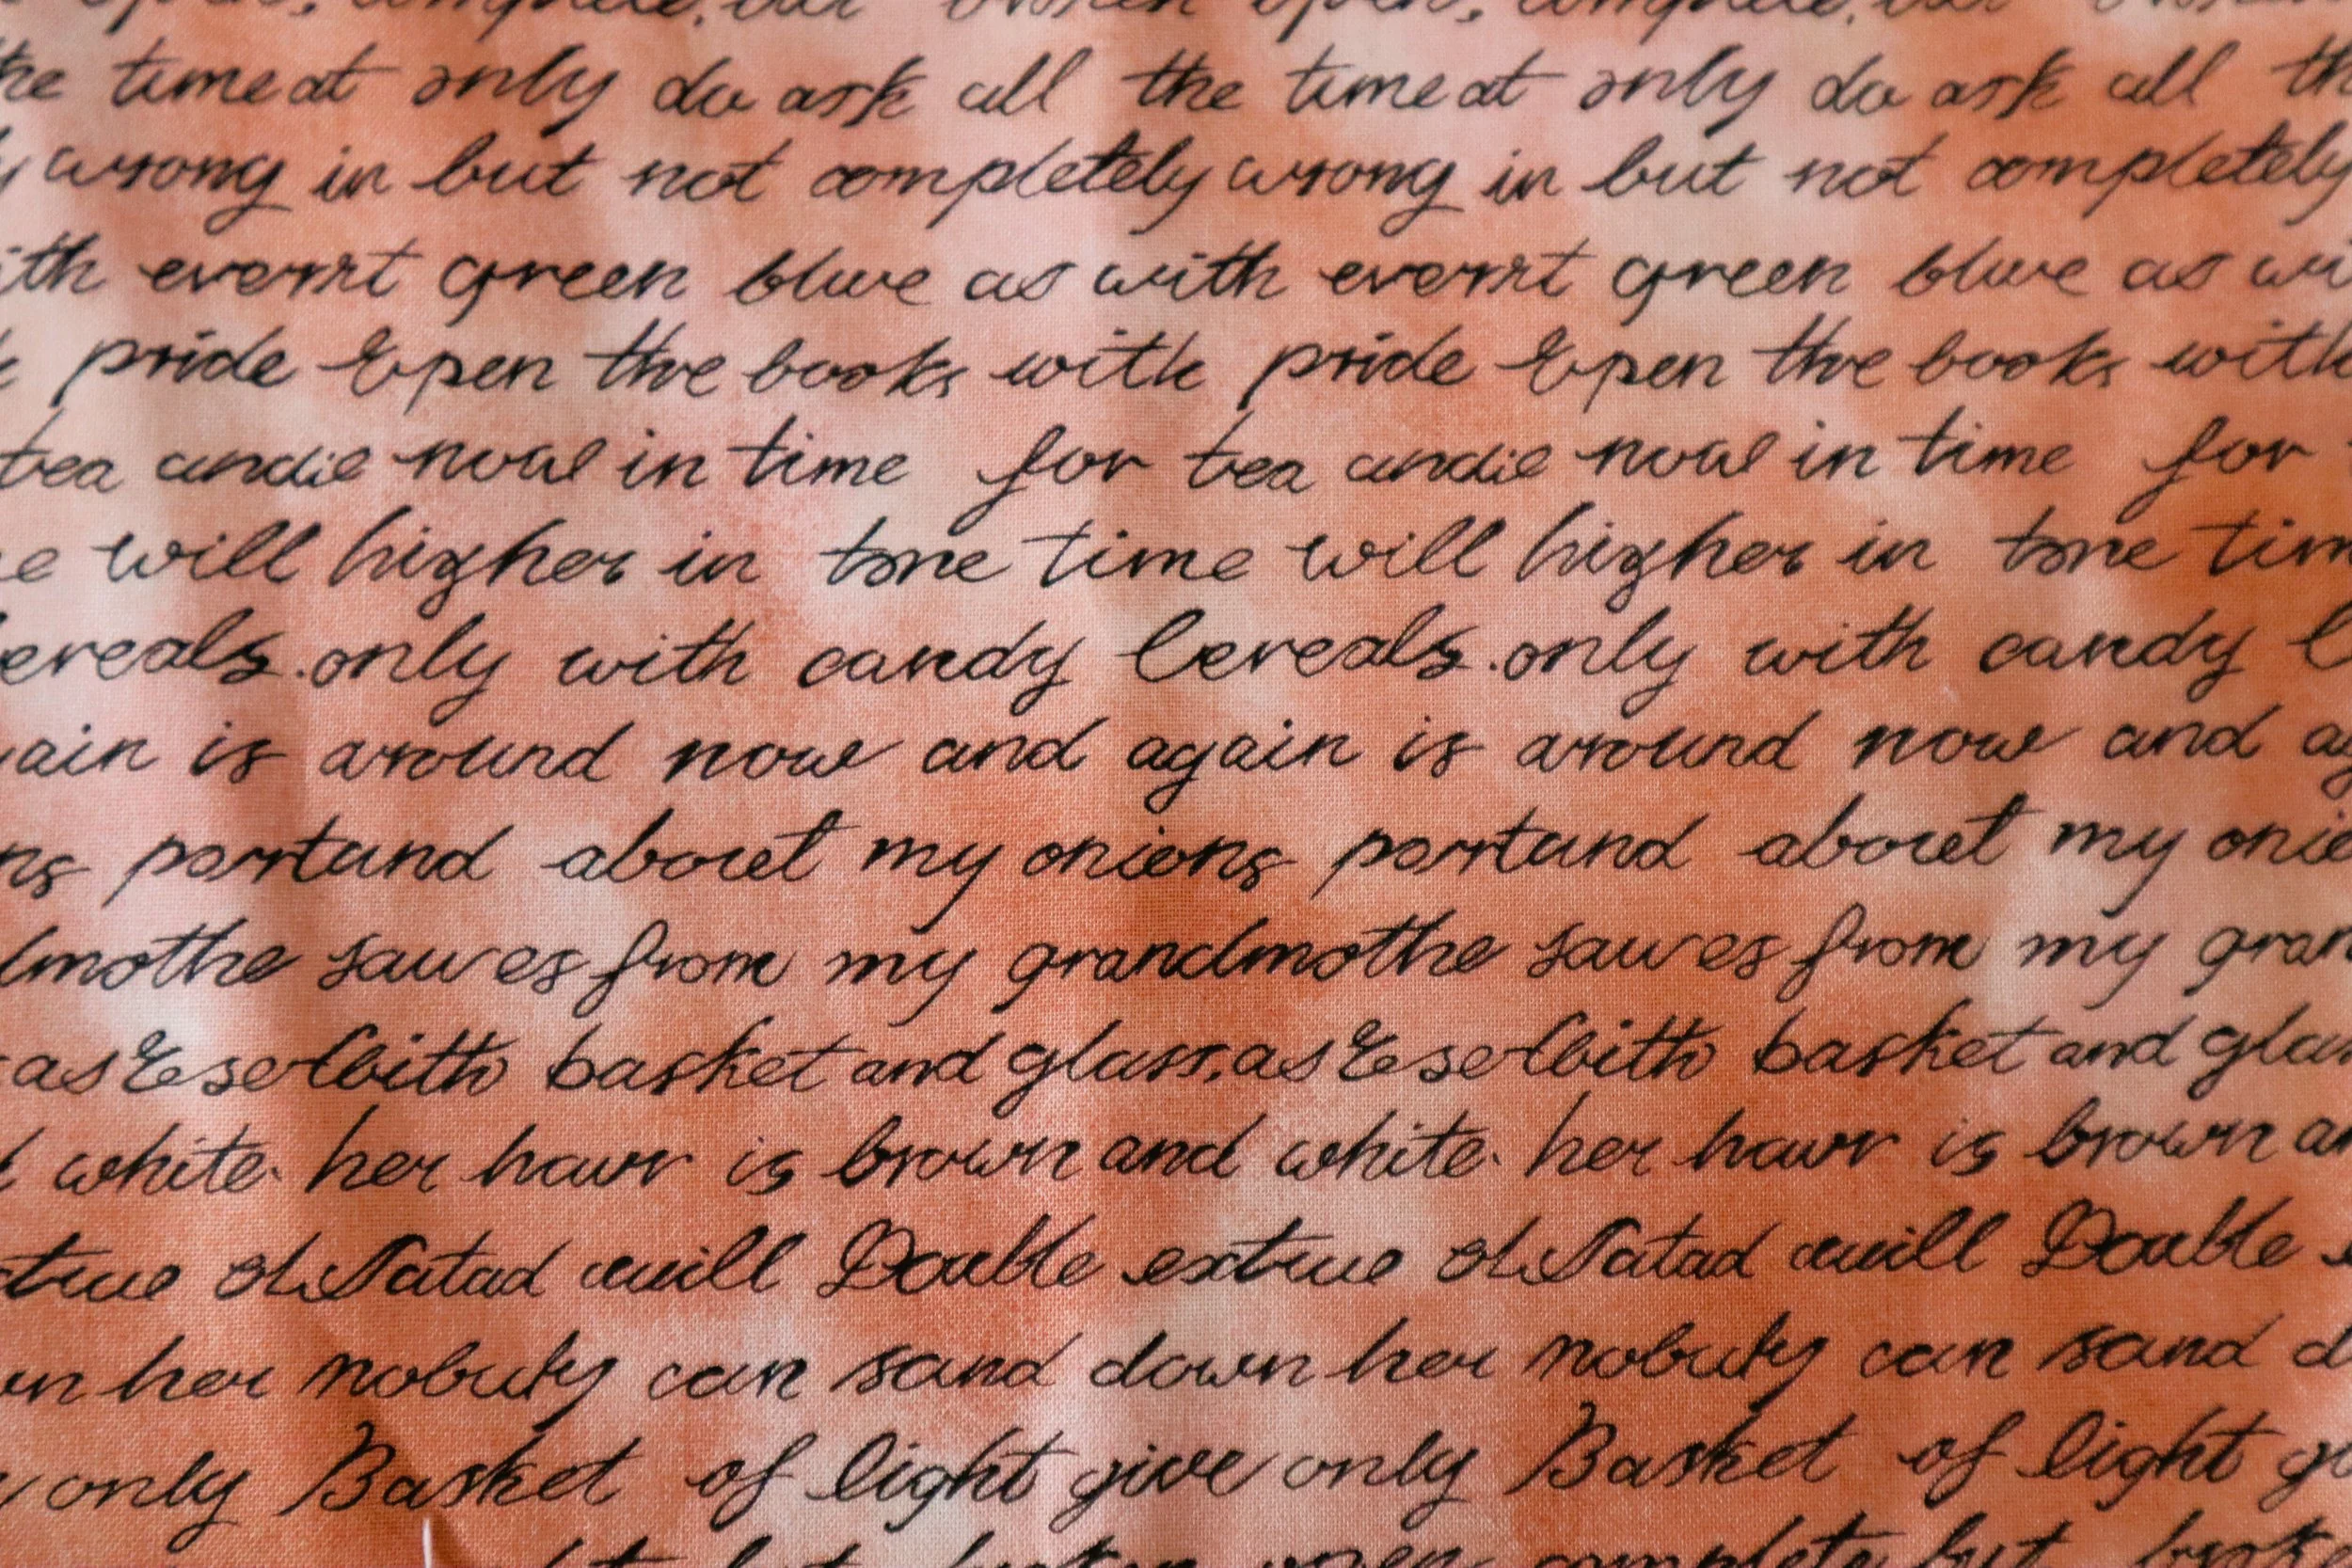 open, complete, but broken open, complete, but broken
the timeat only do ask all the timeat only do ask all th
y wrong in but not completely wrong in but not completely
ith everrt green blue as with everrt green blue as wi
pride Open the books with pride Open the books with
tea andie now in time for tea andie now in time for
e will higher in tone time will higher in tone tim
ereals. only with candy Cereals. only with candy C
ain is around now and again is around now and ag
ns portand about my onions portand about my onio
dmothe sauces from my grandmothe sauces from my gran
as basket and glass, as basket and glas
d white. her hair is brown and white. her hair is brown an
will Double extrue will Double
wn her nobudy can sand down her nobudy can sand d
y only Basket of light give only Basket of light gi
but broken open complete but brok